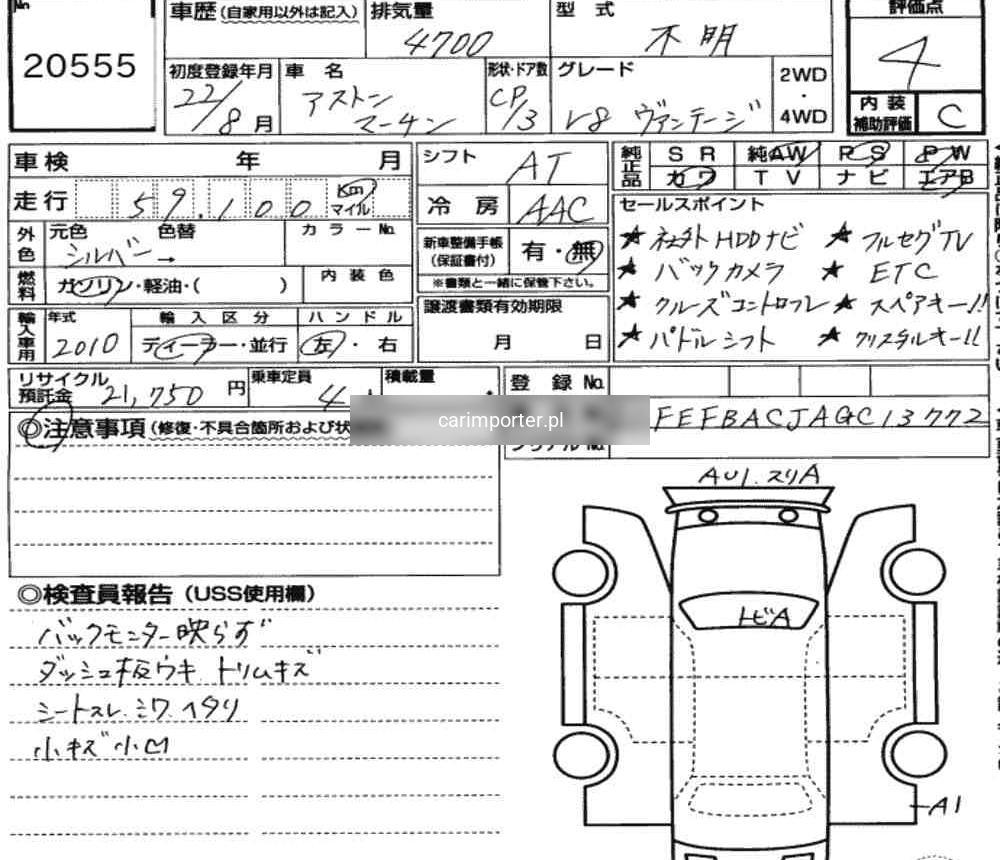 No.
20555
車歴(自家用以外は記入)
排気量 4700
型式 不明
評価点 4
内装補助評価 C
初度登録年月 22/8月
車名 アストンマーチン
形状・ドア数 CP/3
グレード V8 ヴァンテージ
2WD・4WD
車検 年 月
走行 59,100 Km マイル
シフト AT
冷房 AAC
純正品 SR 純AW PS PW
カワ TV ナビ エアB
外色 元色 シルバー → 色替 カラーNo.
燃料 ガソリン・軽油・( ) 内装色
新車整備手帳(保証書付) 有・無
※書類と一緒に保管下さい。
セールスポイント
★社外HDDナビ ★フルセグTV
★バックカメラ ★ETC
★クルーズコントロール ★スペアキー!!
★パドルシフト ★クリスタルキー!!
輸入車用 年式 2010 輸入区分 ディーラー・並行 ハンドル 左・右
譲渡書類有効期限
月 日
リサイクル預託金 21,750円
乗車定員 4人
積載量
登録No.
carimporter.pl
FEFBACJAGC13772
シリアルNo.
◎注意事項(修復・不具合箇所および状
◎検査員報告(USS使用欄)
バックモニター映らず
ダッシュ板ウキ トリムキズ
シートスレ.シワ.ヘタリ
小キズ小凹
AU1.スリA
トビA
A1